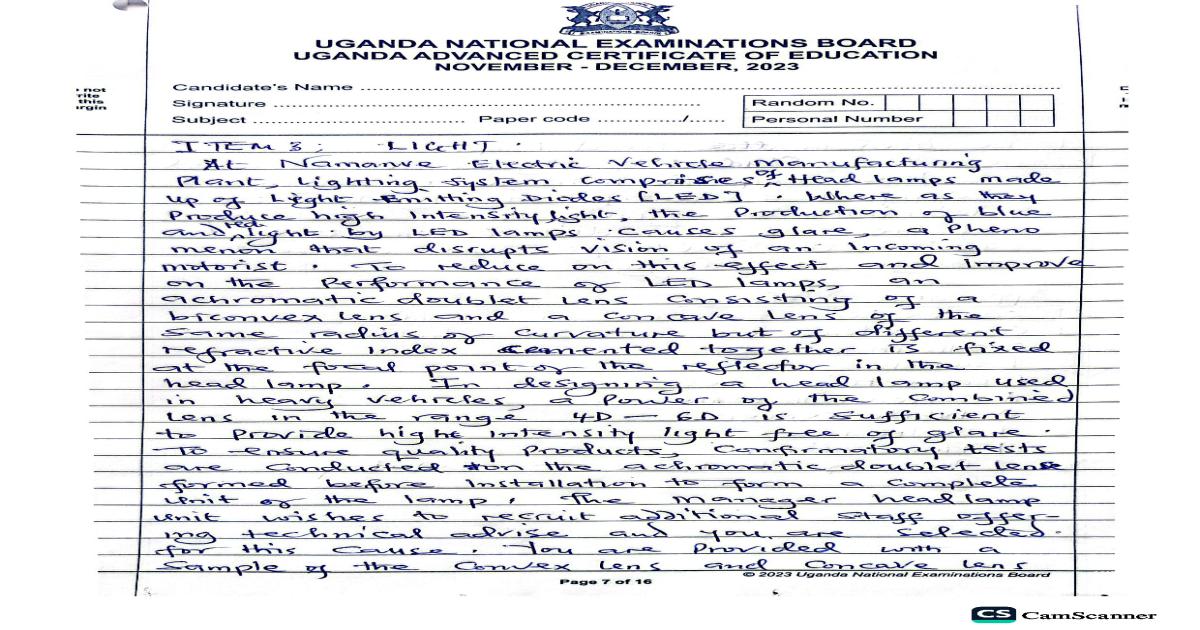 UGANDA NATIONAL EXAMINATIONS BOARD
UGANDA ADVANCED CERTIFICATE OF EDUCATION
NOVEMBER - DECEMBER, 2023
Candidate's Name
Signature
Random No.
Subject Paper code /
Personal Number
not
rite
this
rgin
ITEM 3; LIGHT.
At Namanve Electric Vehicle Manufacturing
Plant, Lighting System Comprises of Head lamps made
up of Light Emitting Diodes [LED]. Where as they
Produce high Intensity light, the Production of blue
and red light by LED lamps causes glare, a Pheno
menon that disrupts vision of an Incoming
motorist. To reduce on this effect and Improve
on the Performance of LED lamps, an
achromatic doublet Lens Consisting of a
biconvex Lens and a Concave Lens of the
Same radius of Curvature but of different
refractive Index Cemented together is fixed
at the focal point of the reflector in the
head lamp. In designing a head lamp used
in heavy vehicles, a Power of the Combined
Lens in the range 4D - 6D is Sufficient
to Provide high Intensity light free of glare.
To ensure quality Products, Confirmatory tests
are Conducted on the achromatic doublet Lens
formed before Installation to form a Complete
Unit of the lamp. The Manager head lamp
unit wishes to recruit additional Staff offer-
ing technical advise and you are selected
for this Cause. You are Provided with a
Sample of the Convex Lens and Concave Lens
© 2023 Uganda National Examinations Board
Page 7 of 16
CS CamScanner